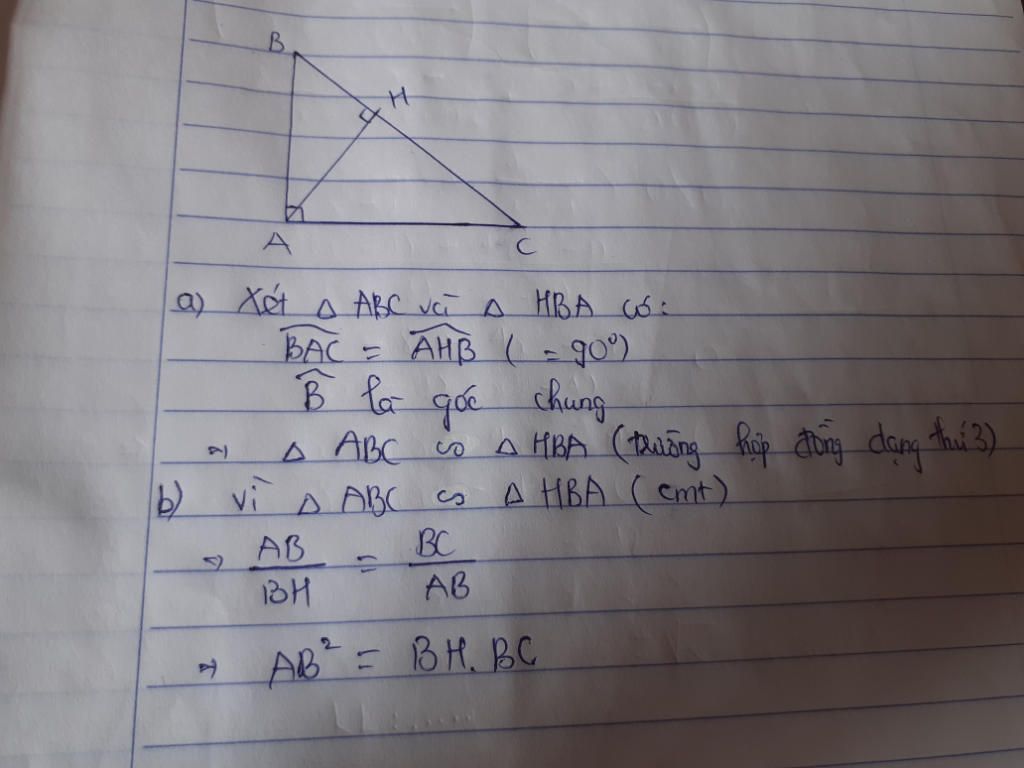 B
H
A
C
a) Xét Δ ABC và Δ HBA có:
$\widehat{BAC}$ = $\widehat{AHB}$ ( = 90°)
$\widehat{B}$ là góc chung
⇒ Δ ABC ∽ Δ HBA (trường hợp đồng dạng thứ 3)
b) Vì Δ ABC ∽ Δ HBA (cmt)
⇒ $\frac{AB}{BH}$ = $\frac{BC}{AB}$
⇒ AB² = BH. BC